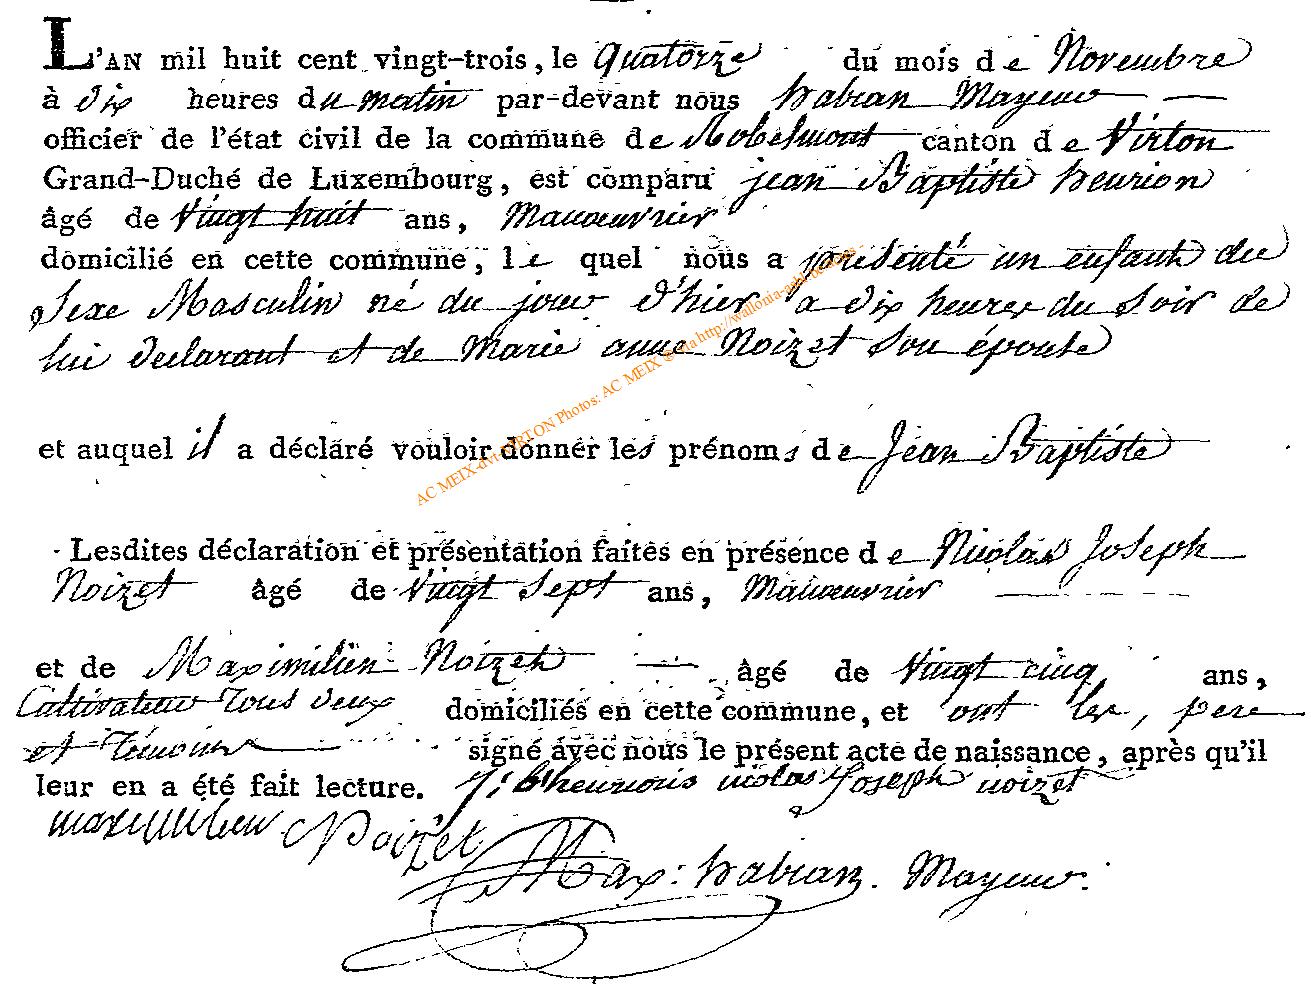 L'AN mil huit cent vingt-trois, le quatorze du mois de Novembre
à dix heures du matin par-devant nous habran Mayeur
officier de l'état civil de la commune de Robelmont canton de Virton
Grand-Duché de Luxembourg, est comparu jean Baptiste henrion
âgé de Vingt huit ans, Manoeuvrier
domicilié en cette commune, le quel nous a présenté un enfant du
Sexe Masculin né du jour d'hier a dix heures du Soir de
lui declarant et de Marie anne Noizet Son épouse
et auquel il a déclaré vouloir donner les prénoms de Jean Baptiste
AC MEIX-dvt-VIRTON Photos: AC MEIX @ via http://wallonia-
Lesdites déclaration et présentation faites en présence de Nicolas Joseph
Noizet âgé de Vingt Sept ans, Manoeuvrier
et de Maximilien Noizet âgé de Vingt cinq ans,
Cultivateur Tous deux domiciliés en cette commune, et ont les, pere
et Témoins signé avec nous le présent acte de naissance, après qu'il
leur en a été fait lecture. J: Bt henrion nicolas Joseph noizet
maximilien Noizet
Max: habran. Mayeur.